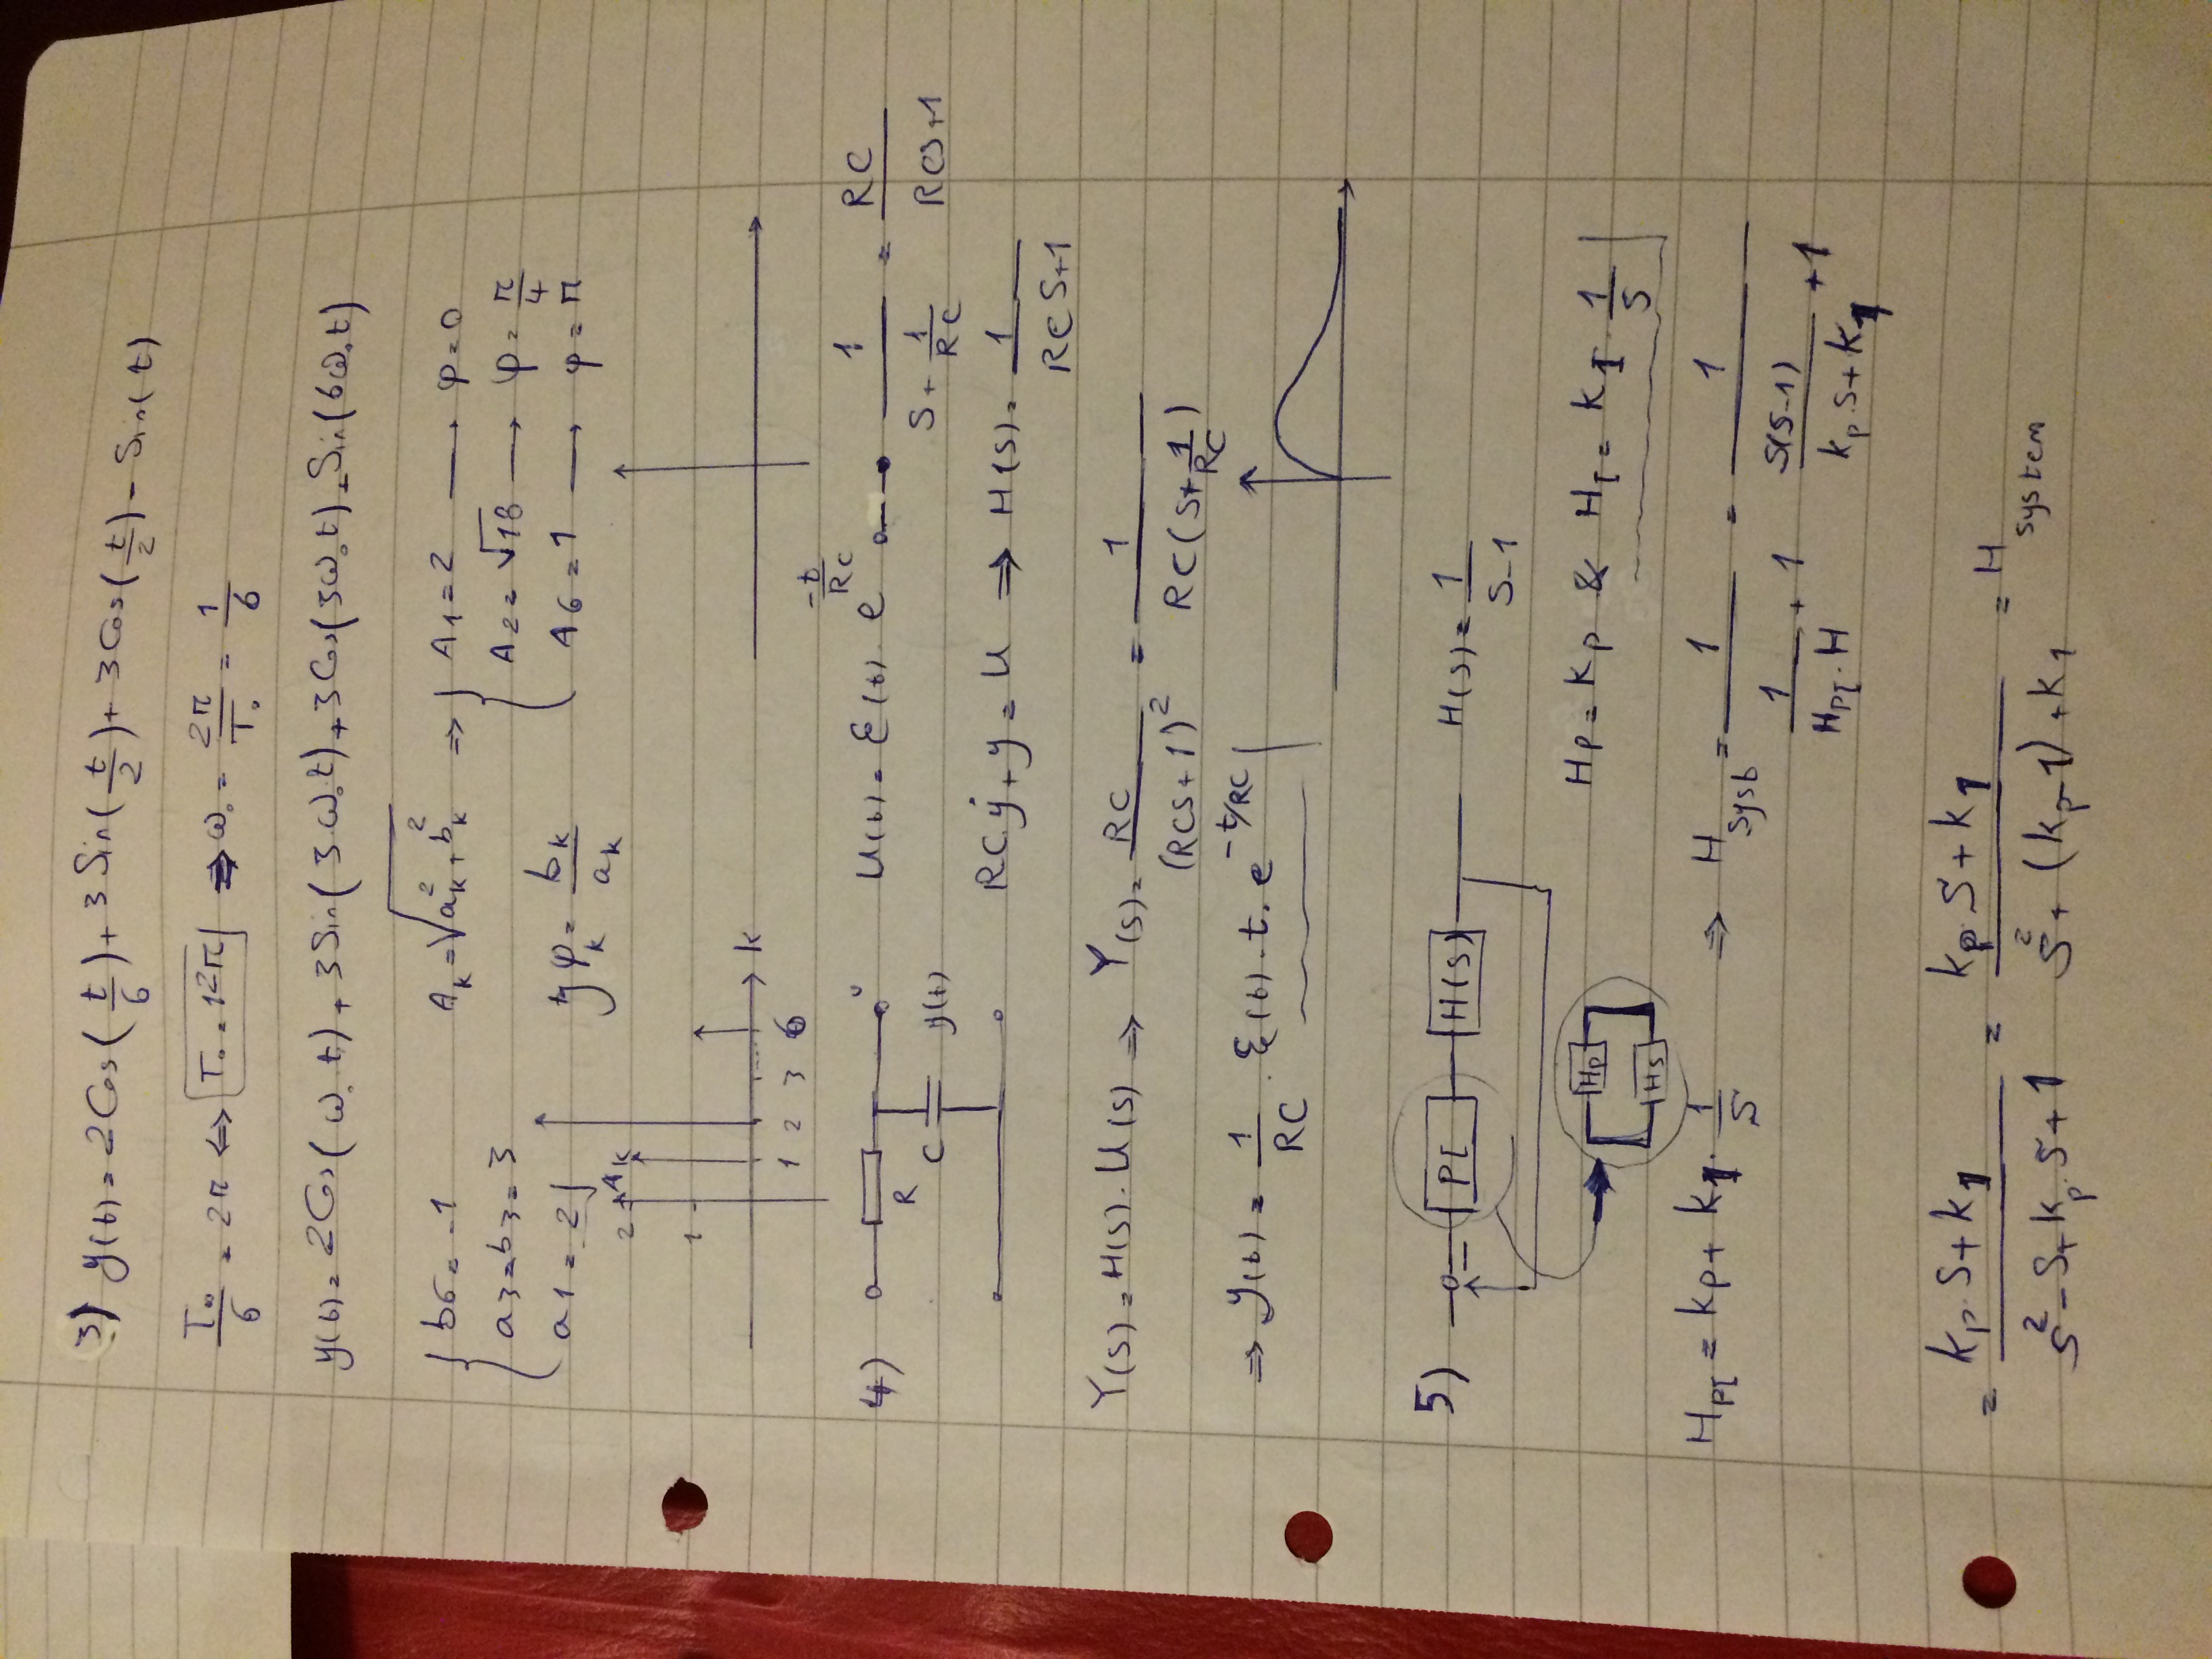 3) y(t) = 2 Cos(t/6) + 3 Sin(t/2) + 3 Cos(t/2) - Sin(t)
T₀/6 = 2π ⇔ T₀ = 12π ⇒ ω₀ = 2π/T₀ = 1/6
y(t) = 2 Cos(ω₀t) + 3 Sin(3ω₀t) + 3 Cos(3ω₀t) - Sin(6ω₀t)
b6 = -1 A_k = √(a_k² + b_k²) ⇒ A1 = 2 → φ = 0
a3 = b3 = 3 A2 = √18 → φ = π/4
a1 = 2 tg φ_k = b_k/a_k A6 = 1 → φ = π
A_k
2
1
k
1 2 3 6
4) R C y(t) U(t) = ε(t) · e^(-t/RC) 1/(S + 1/RC) = RC/(RCS+1)
RC ẏ + y = U ⇒ H(S) = 1/(RCS+1)
Y(S) = H(S) · U(S) ⇒ Y(S) = RC/(RCS+1)² = 1/(RC(S+1/RC))
⇒ y(t) = 1/RC · ε(t) · t · e^(-t/RC)
5) PI H(S) H(S) = 1/(S-1)
Hp Hs Hp = kp & H_I = k_I · 1/S
H_PI = kp + k_I · 1/S ⇒ H_syst = 1/(1/(H_PI · H) + 1) = 1/(S(S-1)/(kp·S + k_I) + 1)
= (kp·S + k_I)/(S² - S + kp·S + 1) = (kp·S + k_I)/(S² + (kp-1) + k1) = H_system